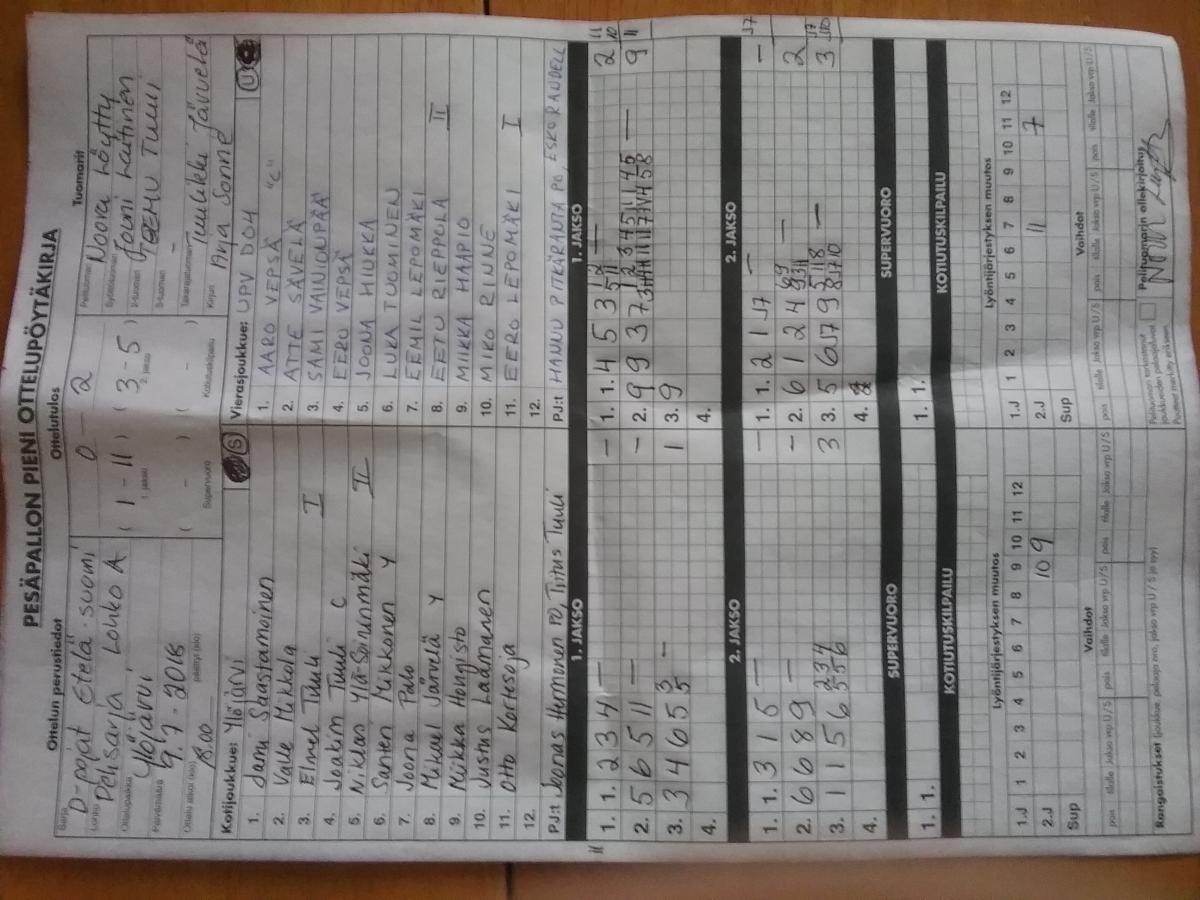 PESÄPALLON PIENI OTTELUPÖYTÄKIRJA
Ottelun perustiedot
Ottelutulos
Tuomarit
Sarja
D-pojat Etelä-Suomi
Lohko
Perussarja, Lohko A
Ottelupaikka
Ylöjärvi
Päivämäärä
9.7.2018
Ottelu alkoi (klo)
18.00
päättyi (klo)
0 - 2
( 1 - 11 ) ( 3 - 5 )
1. jakso 2. jakso
( - ) ( - )
Supervuoro Kotiutuskilpailu
Pelituomari Noora Löytty
Syöttötuomari Jouni Laitinen
2-tuomari TEEMU TUULI
3-tuomari -
Takarajatuomari Tuulikki Järvelä
Kirjuri Anja Sonne
Kotijoukkue: Ylöjärvi S
1. Jami Saastamoinen
2. Valle Mikkola
3. Elmel Tuuli I
4. Joakin Tuuli C
5. Niklas Ylä-Sorunmäki II
6. Santeri Mikkonen Y
7. Joona Palo
8. Mikael Järvelä Y
9. Miikka Hongisto
10. Justus Laamanen
11. Otto Kortesoja
12.
PJ:t Joonas Hymonen PO, Tiitus Tuuli
Vierasjoukkue: UPV DO4 U
1. AARO VEPSÄ "C"
2. ATTE SÄVELÄ
3. SAMI VAINIONPÄÄ
4. EERO VEPSÄ
5. JOONA HIUKKA
6. LUKA TUOMINEN
7. EEMIL LEPOMÄKI
8. EETU RIEPPOLA II
9. MIIKKA HAAPIO
10. MIKO RINNE
11. EERO LEPOMÄKI I
12.
PJ:t HANNU PITKÄRANTA PO, ESKO RAUDELL
1. JAKSO
1. 1. 2 3 4 — -
2. 5 6 5 11 — -
3. 3 4 6 5 3 5 - 1
4.
1. JAKSO
1. 1. 4 5 3 — 2
2. 9 9 3 7 — 9
3. 9
4.
2. JAKSO
1. 1. 3 1 5 — -
2. 6 6 8 9 — -
3. 1 1 5 6 2 3 4 3
4.
2. JAKSO
1. 1. 2 1 J7 — -
2. 6 1 2 4 — 2
3. 5 6 J7 9 — 3
4.
SUPERVUORO
1. 1.
SUPERVUORO
1. 1.
KOTIUTUSKILPAILU
KOTIUTUSKILPAILU
Lyöntijärjestyksen muutos
1 2 3 4 5 6 7 8 9 10 11 12
1.J
2.J 10 9
Sup
Lyöntijärjestyksen muutos
1 2 3 4 5 6 7 8 9 10 11 12
1.J
2.J 11 7
Sup
Vaihdot
pois tilalle Jakso vrp U/S pois tilalle Jakso vrp U/S pois tilalle Jakso vrp U/S
Vaihdot
pois tilalle Jakso vrp U/S pois tilalle Jakso vrp U/S pois tilalle Jakso vrp U/S
Rangaistukset (joukkue, pelaaja nro, jakso vrp U / S ja syy)
Pelituomarin allekirjoitus